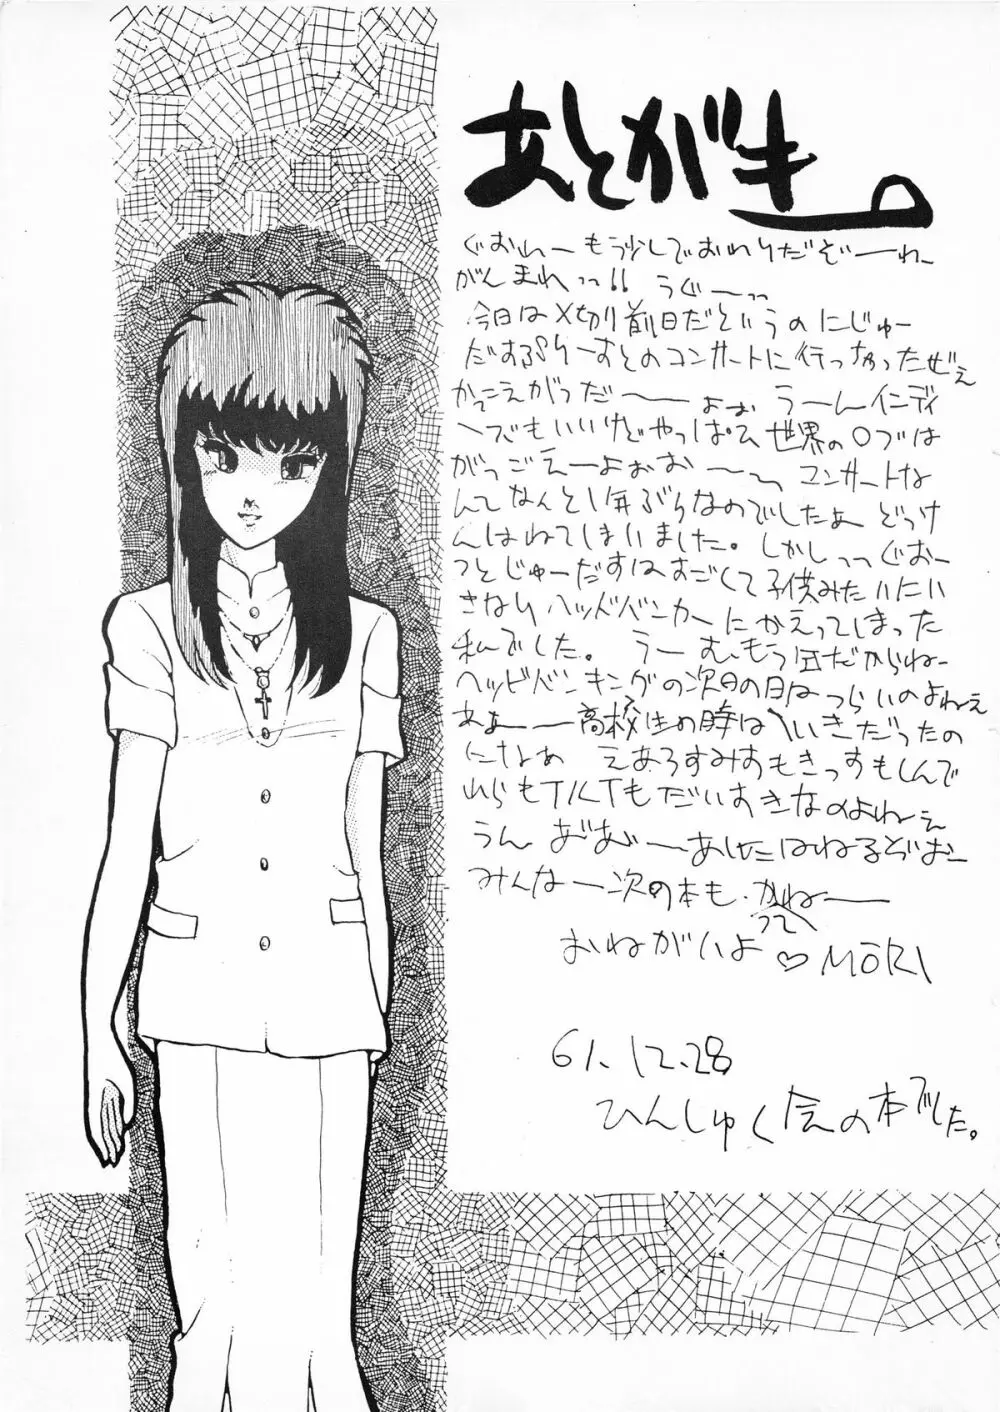 あとがき。
ぐおれーもう少しでおわりだぞーーれー
がんまれっっ!! うぐ〜っっ
今日は〆切り前日だというのにじゅー
だすぷりーすとのコンサートに行っちゃったぜえ
かっこえがっだ〜〜よぉぉ うーんインディ
〜でもいいけどやっぱ 世界の〇ブは
がっごえーよぉぉお〜〜 コンサートな
んてなんと1年ぶりなのでしたよ どっけ
んはねてしまいました。しかしっっぐおー
っとじゅーだすはすごくて子供みたいにい
きなりヘッドバンカーにかえってしまった
私でした。 うー む、もう だからねー
ヘッドバンキングの次の日の日はつらいのよねぇ
あぁー 高校生の時はへいきだったの
になぁ えあろすみすもきっすもしんで
れらもTILTもだいすきなのよねーぇ
うん おぉおぉーあしたはねるぞぉー
みんなー次の本も、かってねーー
おねがいよ♡MORI
61.12.28
ひんしゅく会の本でした。